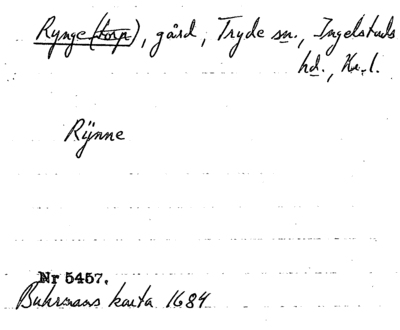 Rynge (torp), gård, Tryde sn., Ingelstads
hd., Kr. l.
Rÿnne
Nr 5457.
Buhrmans karta 1684